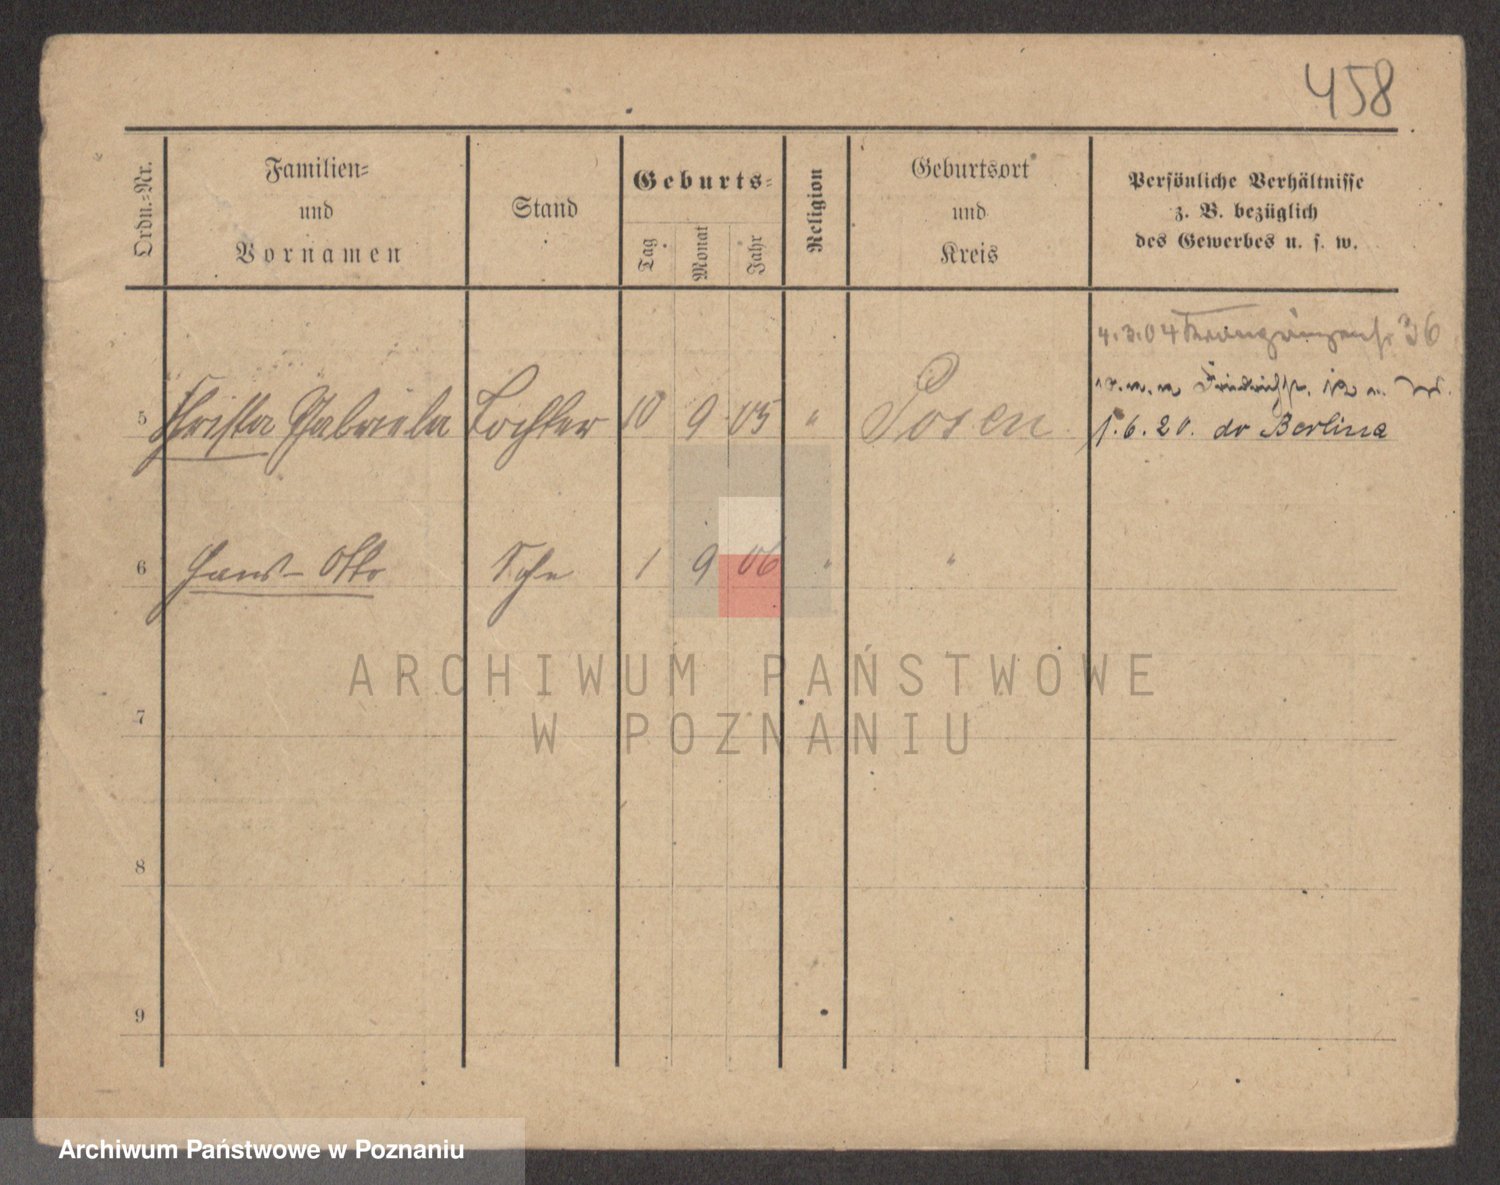 458
Ordn.-Nr.
Familien-
und
Vornamen
Stand
Geburts-
Tag
Monat
Jahr
Religion
Geburtsort
und
Kreis
Persönliche Verhältnisse
z. B. bezüglich
des Gewerbes u. s. w.
4.3.04 36
5 Christa Gabriele Tochter 10 9 05 " Posen
1.6.20. do Berlina
6 Hans-Otto Sohn 1 9 06 " "
7
8
9
ARCHIWUM PAŃSTWOWE
W POZNANIU
Archiwum Państwowe w Poznaniu